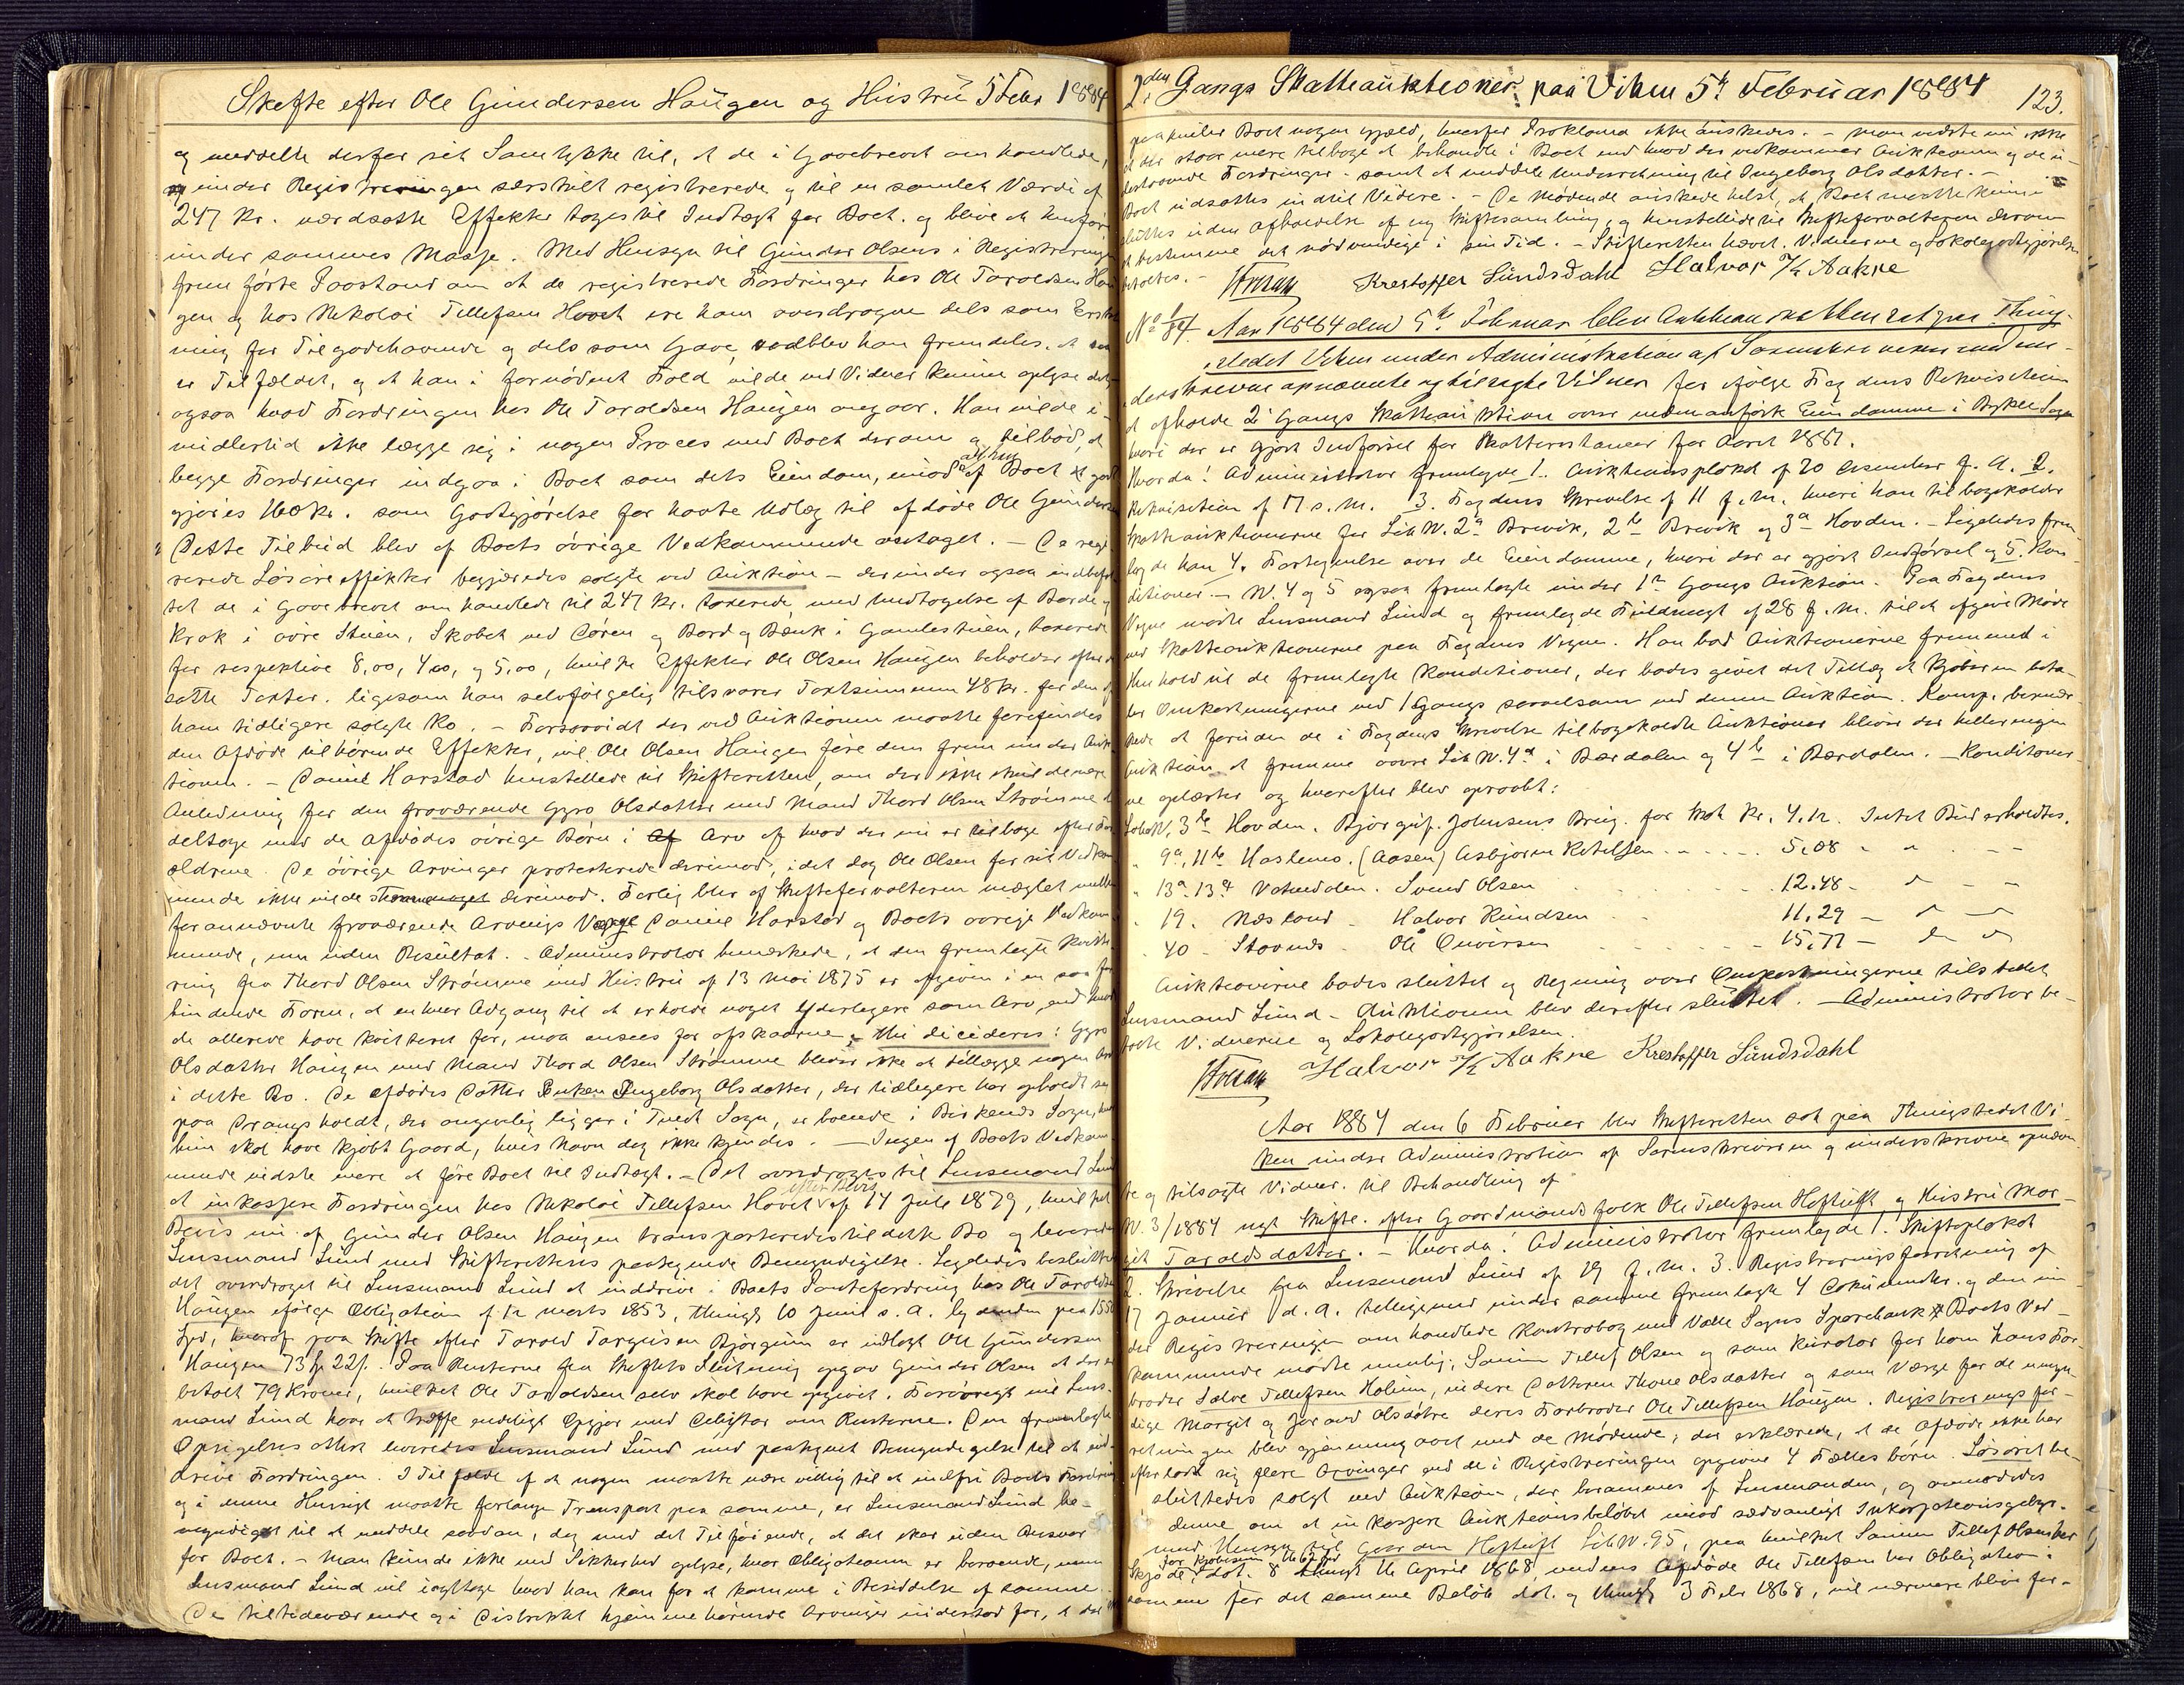 Skifte efter Ole Gundersen Haugen og Hustru 5 Febr 1884
og meddelte derfor sit Samtykke til, at de i Gavebrevet om handlede,
og under Registreringen særskilt registrerede og til en samlet Værdi af
247 Kr. værdsatte Effekter toges til Indtægt for Boet og blive at henføre
under sammes Masse. Med Hensyn til Gunder Olsens i Registreringen
frem førte Paastand om at de registrerede Fordringer hos Ole Taraldsen Hau
gen og hos Nikolai Tellefsen Hovet ere ham overdragne dels som Erstat
ning for Tilgodehavende og dels som Gave, vedblev han fremdeles, at saa
er Tilfældet, og at han i fornødent Fald vilde ved Vidner kunne oplyse det
ogsaa hvad Fordringen hos Ole Taraldsen Haugen angaar. Han vilde i-
midlertid ikke lægge sig i nogen Proces med Boet derom og tilbød, at
begge Fordringer indgaa i Boet som dets Eiendom, imod at ham af Boet godt
gjøres 160 Kr. som Godtgjørelse for havte Udlæg til afdøde Ole Gundersen
Dette Tilbud blev af Boets øvrige Vedkommende antaget. - De regi
strerede Løsøreeffekter begjæredes solgte ved Auktion - derunder ogsaa indbefat
tet de i Gavebrevet om handlede til 247 Kr. taxerede, med Undtagelse af Bord og
Krak i øvre Stuen, Skabet ved Døren og Bord og Bænk i Gamlestuen, taxerede
for respektive 8,00, 4,00, og 5,00, hvilke Effekter Ole Olsen Haugen beholder efter de
satte Taxter. ligesom han selvfølgelig tilsvarer Taxtsummen 48 Kr. for den af
ham tidligere solgte Ko. - Forsaavidt der ved Auktionen maatte forefindes
den Afdøde tilhørende Effekter, vil Ole Olsen Haugen føre dem frem under Auk
tionen. - Daniel Harstad henstillede til Skifteretten, om der ikke skulde være
Anledning for den fraværende Gyro Olsdatter med Mand Thord Olsen Strømme at
deltage med de Afdødes øvrige Børn i Arv af hvad der nu er tilbage efter For
ældrene. De øvrige Arvinger protesterede derimod, idet dog Ole Olsen for sit Vedkom
mende ikke vilde derimod. Forlig blev af Skifteforvalteren mæglet mellem
forannævnte fraværende Arvings Værge Daniel Harstad og Boets øvrige Vedkom
mende, men uden Resultat. - Administrator bemærkede, at den fremlagte Kvitte
ring fra Thord Olsen Strømme med Hustru af 13 Mai 1875 er afgiven i en saa for
bindende Form, at enhver Adgang til at erholde noget yderligere som Arv, end hvad
de allerede have kvitteret for, maa ansees for afskaaren. Thi decideres: Gyro
Olsdatter Haugen med Mand Thord Olsen Strømme bliver ikke at tillægge nogen Arv
i dette Bo. De afdødes Datter Enken Ingeborg Olsdatter, der tidligere har opholdt sig
paa Drangsholdt, der angivelig ligger i Tveit Sogn, er boende i Birkenes Sogn, hvor
hun skal have kjøbt Gaard, hvis Navn dog ikke kjendes. - Ingen af Boets Vedkom
mende vidste mere at føre Boet til Indtægt. - Det overdroges til Lensmand Lund
at inkassere Fordringen hos Nikolai Tellefsen Hovet efter Bevis af 14 Juli 1879, hvilket
Bevis nu af Gunder Olsen Haugen transporteredes til dette Bo og leveredes
Lensmand Lund med Skifterettens paategnede Bemyndigelse. Ligeledes besluttedes
det overdraget til Lensmand Lund at inddrive Boets Pantefordring hos Ole Taraldsen
Haugen ifølge Obligation af 12 Marts 1853, thingl. 10 Juni s. A. lydende paa 155
Spd, hvoraf paa Skifte efter Tarald Targeisen Bjørgum er udlagt Ole Gundersen
Haugen 73 Sp 22 s. Paa Renterne fra Skiftets Slutning opgav Gunder Olsen at der er
betalt 79 Kroner, hvilket Ole Taraldsen selv skal have opgivet. Forøvrigt vil Lens-
mand Lund have at træffe endeligt Opgjør med Debitor om Renterne. Den fremlagte
Opsigelses Attest leveredes Lensmand Lund med paategnet Bemyndigelse til at ind-
drive Fordringen. I Tilfælde af at nogen maatte være villig til at indfri Boets Fordring
og i denne Hensigt maatte forlange Transport paa samme, er Lensmand Lund be-
myndiget til at meddele saadan, dog med det Tilføiende, at det sker uden Ansvar
for Boet. - Man kunde ikke med Sikkerhed oplyse, hvor Obligationen er beroende, men
Lensmand Lund vil iagttage hvad han kan for at komme i Besiddelse af samme.
De tilstedeværende og i Distriktet hjemmehørende Arvinger indestod for, at det
2den Gangs Skatteauktioner paa Viken 5te Februar 1884
123.
paahviler Boet nogen Gjæld, hvorfor Proklama ikke ønskedes. - Man vidste nu ikke
at der staar mere tilbage at behandle i Boet end hvad der vedkommer Auktionen og de u-
destaaende Fordringer. samt at meddele Underretning til Ingeborg Olsdatter. -
Boet udsattes indtil Videre. - De Mødende ønskede helst, at Boet maatte kunne
sluttes uden Afholdelse af ny Skiftesamling, og henstillede til Skifteforvalteren derom
at bestemme det nødvendige i sin Tid. - Skifteretten hævet. Vidnerne og Lokalegodtgjørelsen
betaltes. -
Kristoffer Sundsdahl Halvor Aakre
No 1/84. Aar 1884 den 5te Februar blev Auktionsretten sat paa Thing-
stedet Viken under Administration af Sorenskriveren med un-
derskrevne opnævnte og tilsagte Vidner for ifølge Fogdens Rekvisition
at afholde 2' Gangs Skatteauktion over nedenanførte Eiendomme i Bykle Sogn
hvori der er gjort Indførsel for Skatterestancer for Aaret 1881.
Hvorda! Administrator fremlagde 1. Auktionsplakat af 20 December f. A. 2.
Rekvisition af 17 s. M. 3. Fogdens Skrivelse af 11 f. M. hvori han tilbagekalder
Skatteauktionerne for Løb N. 2a Brevik, 2b Brevik og 3a Hovden. - Ligeledes frem
lagde han 4. Fortegnelse over de Eiendomme, hvori der er gjort Indførsel og 5. Kon
ditioner. - N. 4 og 5 ogsaa fremlagte under 1te Gangs Auktion. Paa Fogdens
Vegne mødte Lensmand Lund og fremlagde Fuldmagt af 28 f. M. til at afgive Møde
ved Skatteauktionerne paa Fogdens Vegne. Han bad Auktionerne fremmed i
Henhold til de fremlagte Konditioner, der bades givet det Tillæg at Kjøberen beta-
ler Omkostningerne ved 1 Gangs saavelsom ved denne Auktion. Komp. bemær
kede at foruden de i Fogdens Skrivelse tilbagekaldte Auktioner bliver der heller ingen
Auktion at fremme over Løb N. 4a i Bærdalen og 4b i Bærdalen. - Konditioner
ne oplæstes og hvorefter blev opraabt:
Løbe N. 3b Hovden. Bjørgulf Johnsens Brug. for Skat Kr. 4.12. Intet Bud erholdtes.
" 9a, 11b Haslemo. (Aasen) Asbjørn Ketilsen 5.08 " "
" 13a 13d Vatnedalen. Svend Olsen 12.48
" 19. Næsland Halvor Knudsen 11.29
" 40 Stavnes Ole Eivinsen 15.77
Auktionerne bades sluttet og Regning over Omkostningerne tilstillet
Lensmand Lund. - Auktionen blev derefter sluttet. - Administrator be-
talte Vidnerne og Lokalegodtgjørelsen.
Halvor Aakre Kristoffer Sundsdahl
Aar 1884 den 6 Februar blev Skifteretten sat paa Thingstedet Vi-
ken under Administration af Sorenskriveren og underskrevne opnævn
te og tilsagte Vidner. til Behandling af
N. 3/1884 nyt Skifte efter Gaardmandsfolk Ole Tellefsen Hoftuft og Hustru Mar-
git Taraldsdatter. - Hvorda! Administrator fremlagde 1. Skifteplakat
2. Skrivelse fra Lensmand Lund af 19 f. M. 3. Registreringsforretning af
17 Januar d. A. tilligemed under samme fremlagte 4 Dokumenter. og den un-
der Registreringen om handlede Kontrabog med Valle Sogns Sparebank. Boets Ved-
kommende mødte nemlig: Sønnen Tellef Olsen og som Kurator for ham hans Far-
broder Salve Tellefsen Holum, videre Datteren Thone Olsdatter og som Værge for de umyn-
dige Margit og Joraand Olsdøtre deres Farbroder Ole Tellefsen Haugen. Registreringsfor-
retningen blev gjennemgaaet med de Mødende; der erklærede, at de Afdøde ikke har
efterladt sig flere Arvinger end de i Registreringen opgivne 4 Fællesbørn. Løsøret be-
sluttedes solgt ved Auktion, der berammes af Lensmanden, og anmodedes
denne om at inkassere Auktionsbeløbet imod sædvanligt Inkassationsgebyr.
med Hensyn til Gaarden Hoftuft Løb N. 95, paa hvilket Sønnen Tellef Olsen har
Skjøde for Kjøbesum dat. 8 thingl. 16 April 1868, medens Afdøde Ole Tellefsen har Obligation i
samme for det samme Beløb dat. og thingl. 3 Febr 1868, vil nærmere blive for-